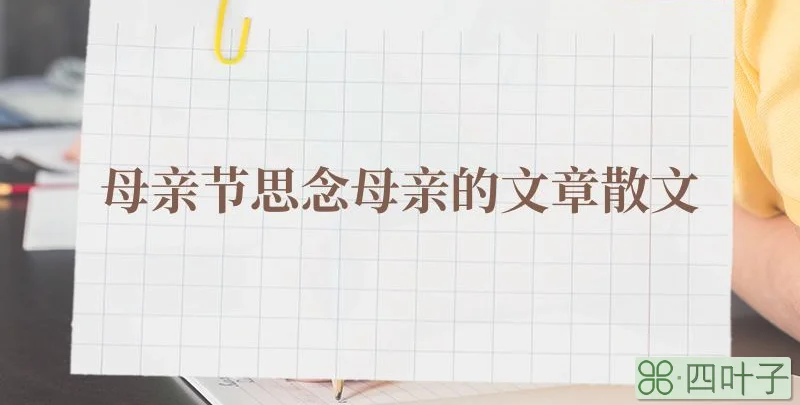 母亲节思念母亲的文章散文
四叶子